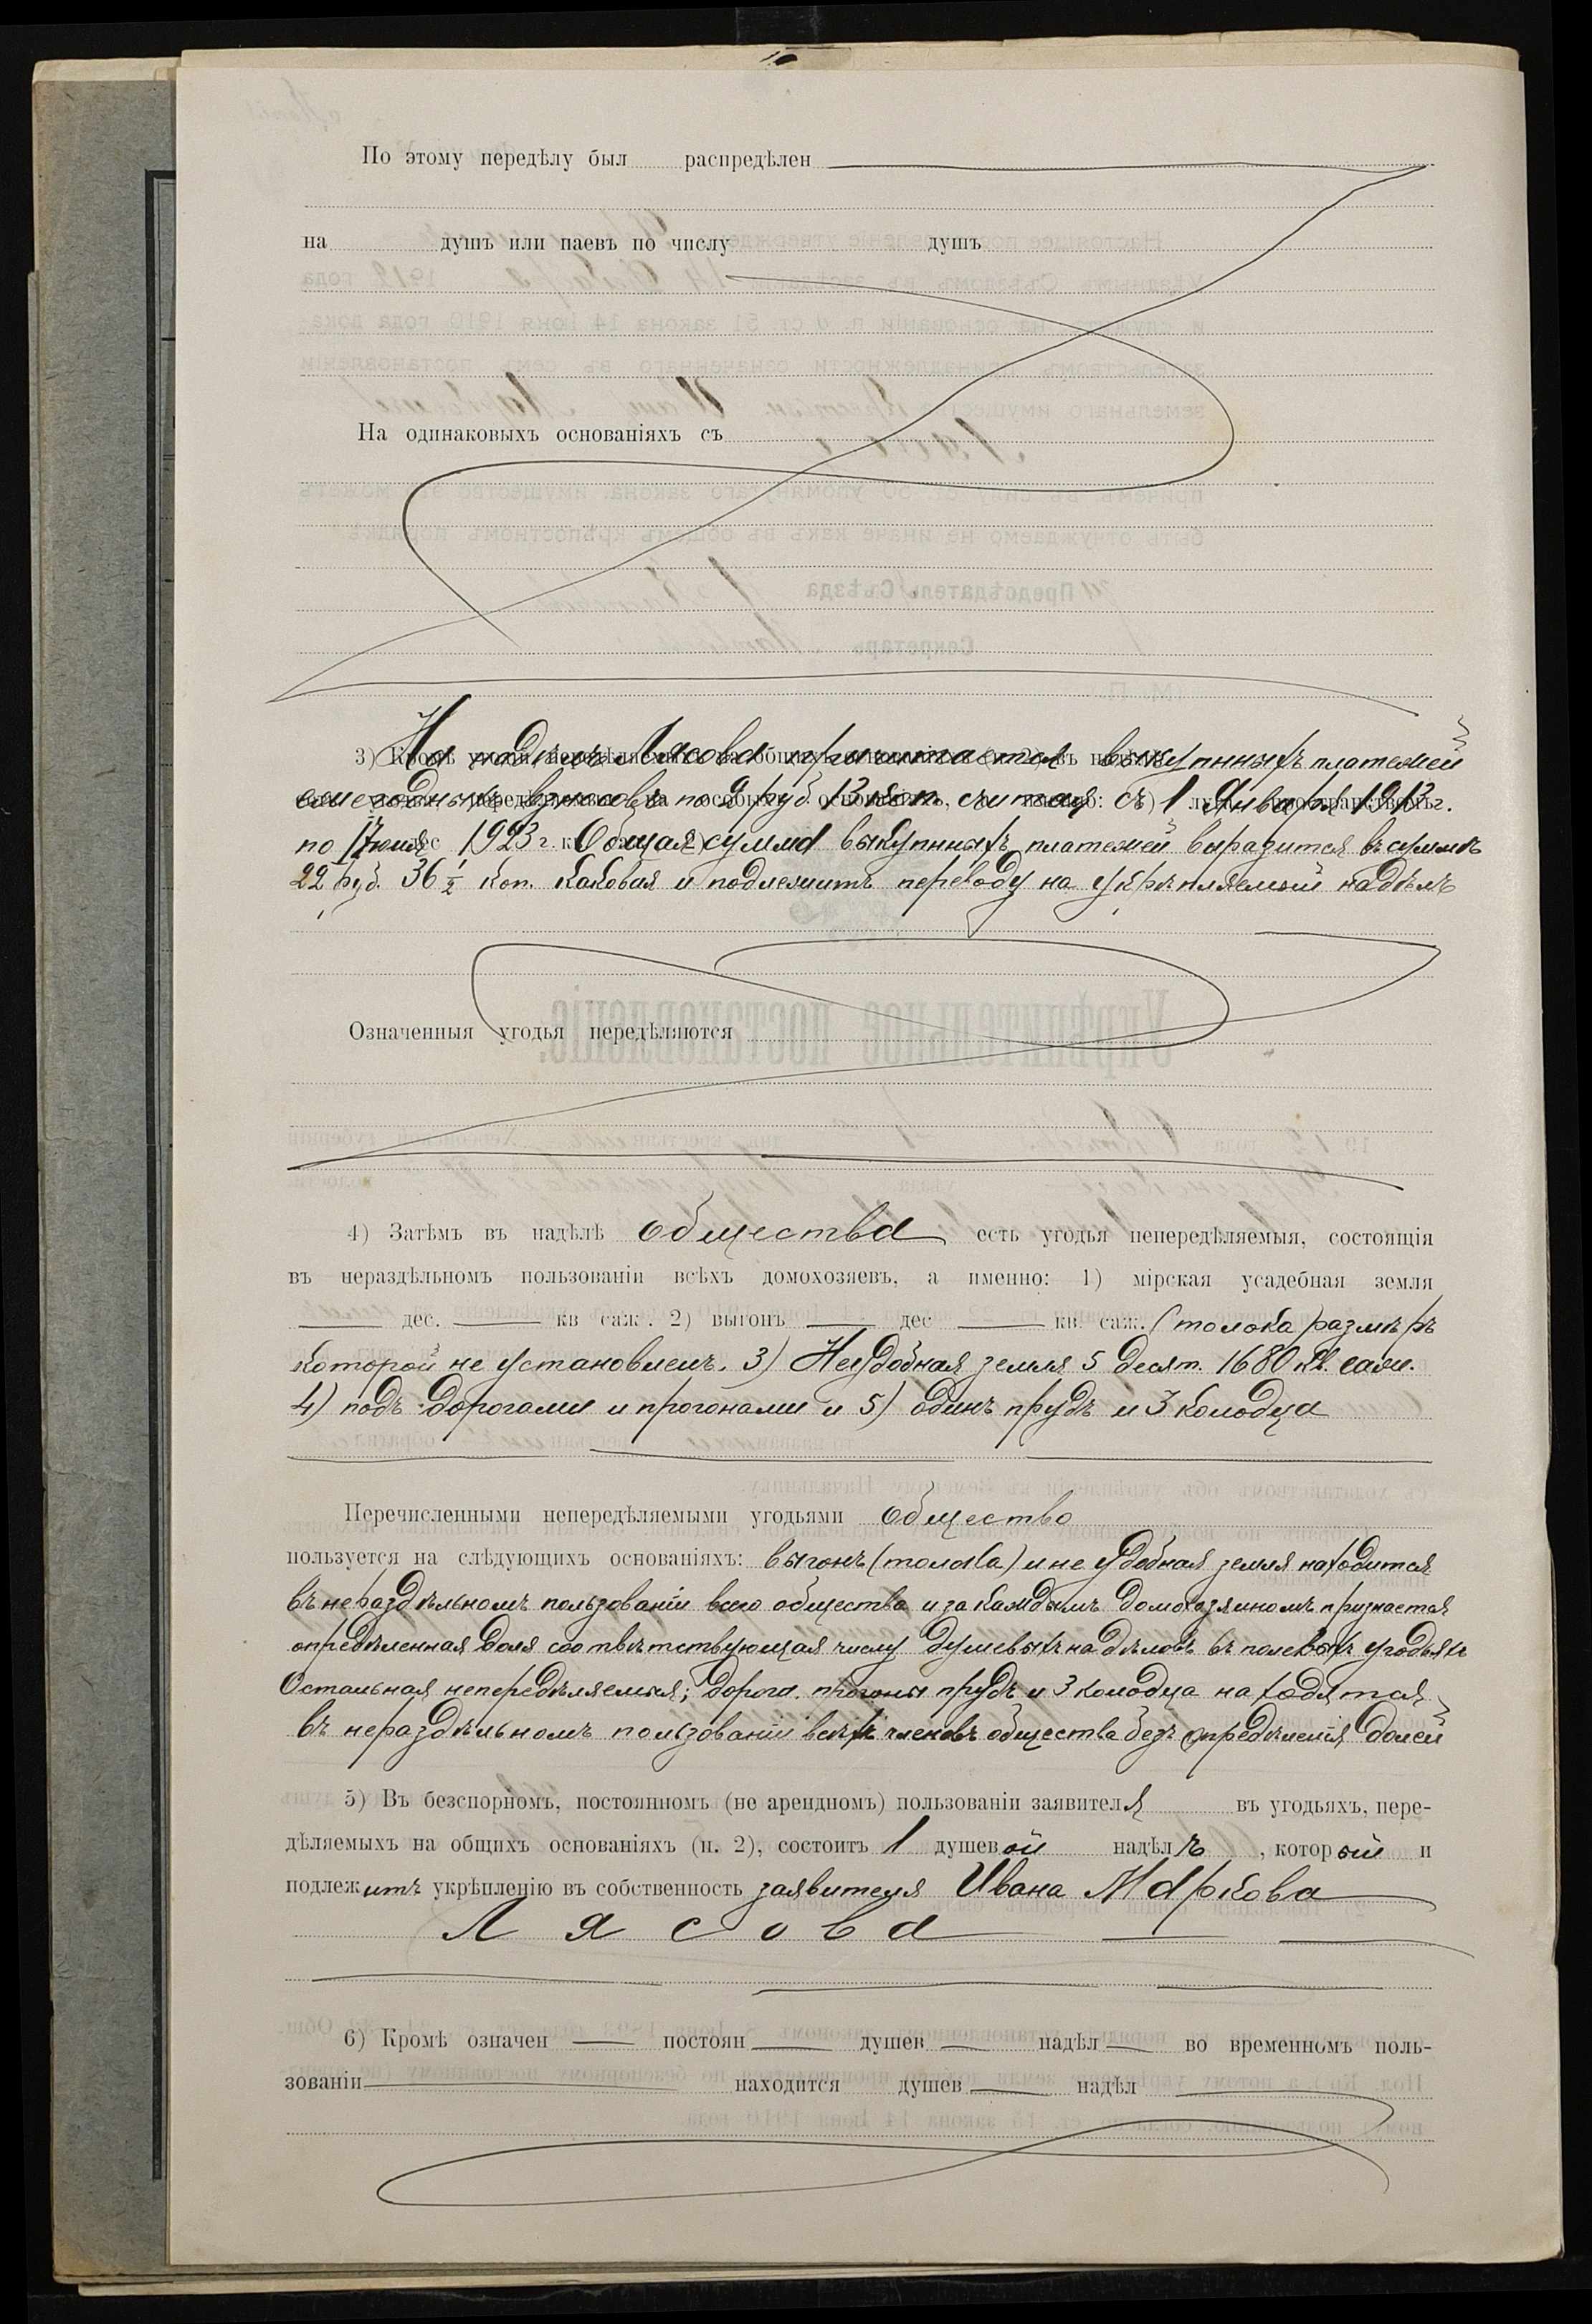 По этому передѣлу был распредѣлен
на душъ или паевъ по числу душъ
На одинаковыхъ основаніяхъ съ
На надѣлъ Лясова причитается выкупныхъ платежей
ежегодныхъ взносовъ по 2 руб. 13 коп. считая съ 1 Января 1913 г.
по 1 Іюля 1923 г. Общая сумма выкупныхъ платежей выразится въ суммѣ
22 руб. 36 ½ коп. каковая и подлежитъ переводу на укрѣпляемый надѣлъ
Означенныя угодья передѣляются
4) Затѣмъ въ надѣлѣ общества есть угодья непередѣляемыя, состоящія
въ нераздѣльномъ пользованіи всѣхъ домохозяевъ, а именно: 1) мірская усадебная земля
— дес. — кв саж. 2) выгонъ — дес — кв. саж. (толока) размѣръ
которой не установленъ. 3) Неудобная земля 5 десят. 1680 кв. саж.
4) подъ дорогами и прогонами и 5) одинъ прудъ и 3 колодца
Перечисленными непередѣляемыми угодьями общество
пользуется на слѣдующихъ основаніяхъ: выгонъ (толока) и не удобная земля находится
въ нераздѣльномъ пользованіи всего общества и за каждымъ домохозяиномъ признается
опредѣленная доля соотвѣтствующая числу душевыхъ надѣловъ въ полевыхъ угодьяхъ
Остальная непередѣляемыя; дорога. прогоны прудъ и 3 колодца находятся
въ нераздѣльномъ пользованіи всѣхъ членовъ общества безъ опредѣленія долей
5) Въ безспорномъ, постоянномъ (не арендномъ) пользованіи заявителя въ угодьяхъ, пере-
дѣляемыхъ на общихъ основаніяхъ (п. 2), состоитъ 1 душевой надѣлъ, который и
подлежитъ укрѣпленію въ собственность заявителя Ивана Маркова
Лясова
6) Кромѣ означен — постоян — душев — надѣл — во временномъ поль-
зованіи — находится душев — надѣл —